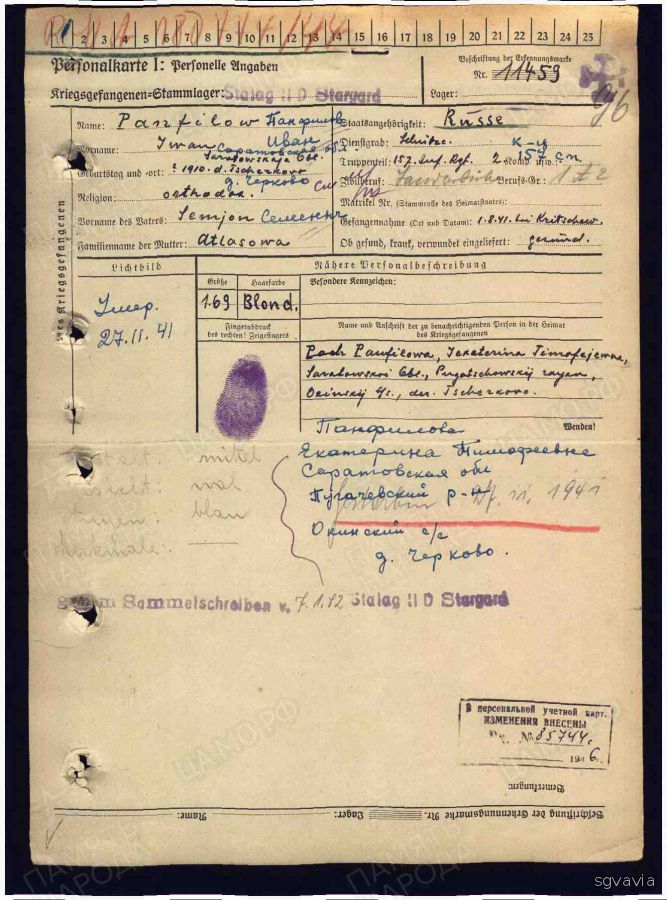 2 3 4 5 6 7 8 9 10 11 12 13 14 15 16 17 18 19 20 21 22 23 24 25
Personalkarte I: Personelle Angaben
Beschriftung der Erkennungsmarke
Nr. 11459
Kriegsgefangenen-Stammlager: Stalag II D Stargard
Lager:
96
Name: Panfilow Панфилов
Staatsangehörigkeit: Russe
Vorname: Iwan Иван
Dienstgrad:
Саратовская обл
Saratowskaja Obl.
Truppenteil: 157. Inf. Rgt. 2 Komp. usw. 157 сп
Geburtstag und -ort: 1910. d. Tscherkowo
д. Черково
Zivilberuf: Berufs-Gr.:
Religion: orthodox.
Matrikel Nr. (Stammrolle des Heimatstaates):
Vorname des Vaters: Semjon Семен
Gefangennahme (Ort und Datum): 1.8.41. bei Kritschew.
Familienname der Mutter: Atlasowa
Ob gesund, krank, verwundet eingeliefert: gesund.
des Kriegsgefangenen
Lichtbild
Nähere Personalbeschreibung
Größe
Haarfarbe
Besondere Kennzeichen:
1.69
Blond.
Умер.
27.11.41
Fingerabdruck
des rechten! Zeigefingers
Name und Anschrift der zu benachrichtigenden Person in der Heimat
des Kriegsgefangenen
Panfilowa, Jekaterina Timofejewna,
Saratowskoi Obl., Pugatschowskij rayon,
Osinskij s/s., der. Tscherkowo.
Wenden!
Панфилова
Екатерина Тимофеевне
Саратовская обл
Пугачевский р-н
1941
Окинский с/с
д. Черково.
mittel
oval
blau
Merkmale:
Sammelschreiben v. 7.1.42 Stalag II D Stargard
В персональной учетной карт.
ИЗМЕНЕНИЯ ВНЕСЕНЫ
№ 85744.
194 6.
Bemerkungen:
Beschriftung der Erkennungsmarke Nr. Lager: Name:
ПАМЯТЬ
НАРОДА
ЦАМО.РФ
sgvavia